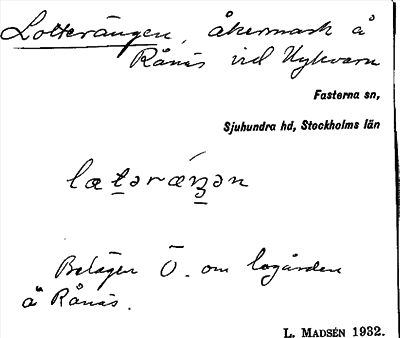 Lotterängen, åkermark å
Rånäs vid Nykvarn
Fasterna sn,
Sjuhundra hd, Stockholms län
lætərǽŋən
Belägen Ö. om logården
å Rånäs.
L. MADSÉN 1932.